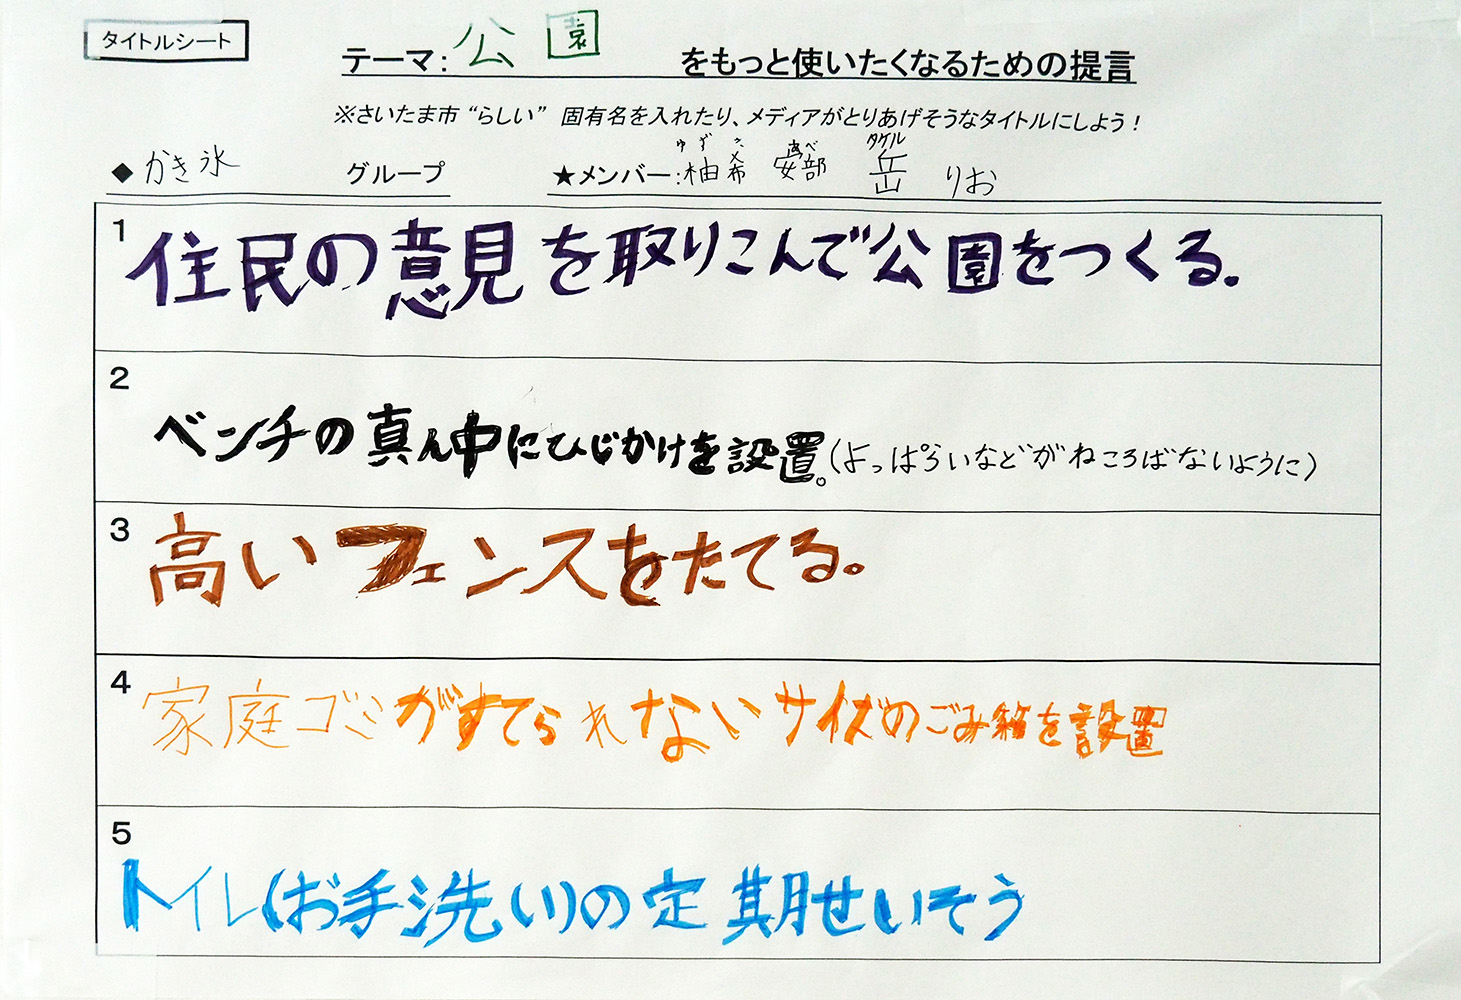 タイトルシート
テーマ：公園 をもっと使いたくなるための提言
※さいたま市“らしい” 固有名を入れたり、メディアがとりあげそうなタイトルにしよう！
ゆずき あべ タケル
◆かき氷 グループ ★メンバー：柚希 安部 岳 りお
1 住民の意見を取りこんで公園をつくる.
2 ベンチの真ん中にひじかけを設置。(よっぱらいなどがねころばないように)
3 高いフェンスをたてる。
4 家庭ゴミがすてられないサイズのごみ箱を設置
5 トイレ(お手洗い)の定期せいそう